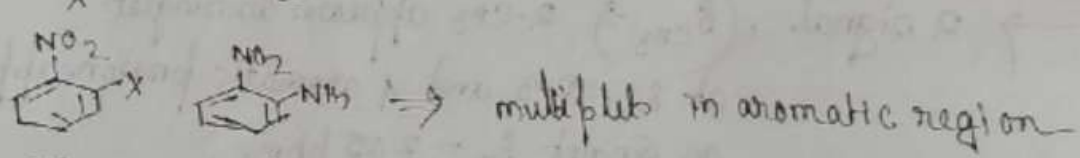 NO2 NO2
X NH2 ⇒ multiplets in aromatic region